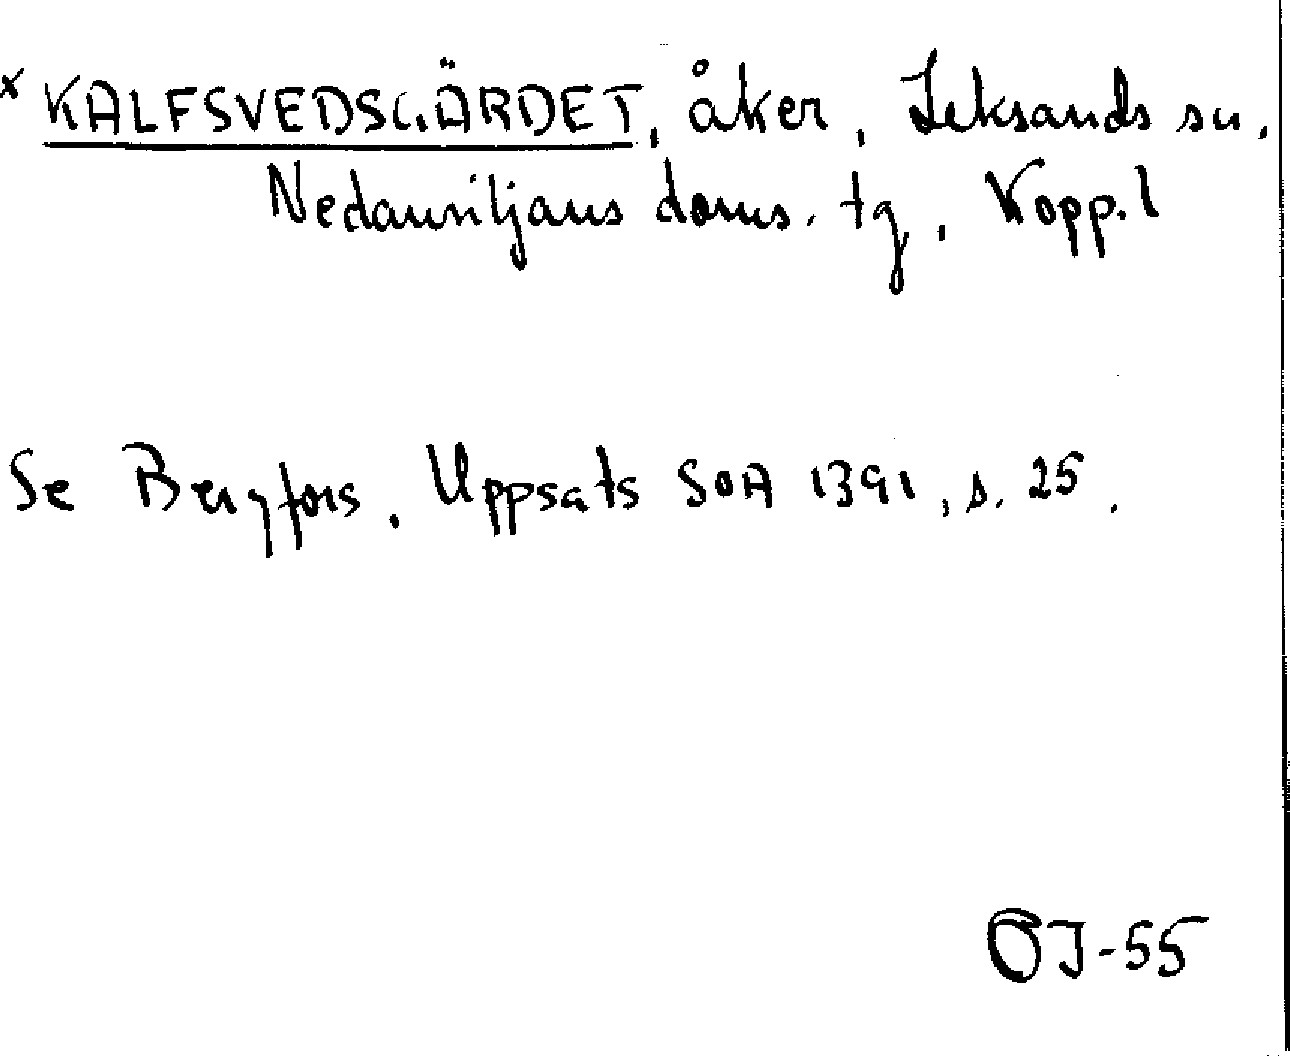 x KALFSVEDSGÄRDET, åker, Leksands sn,
Nedansiljans doms. tg, Kopp. l
Se Bergfors, Uppsats SOA 1391, s. 25.
ÖJ-55